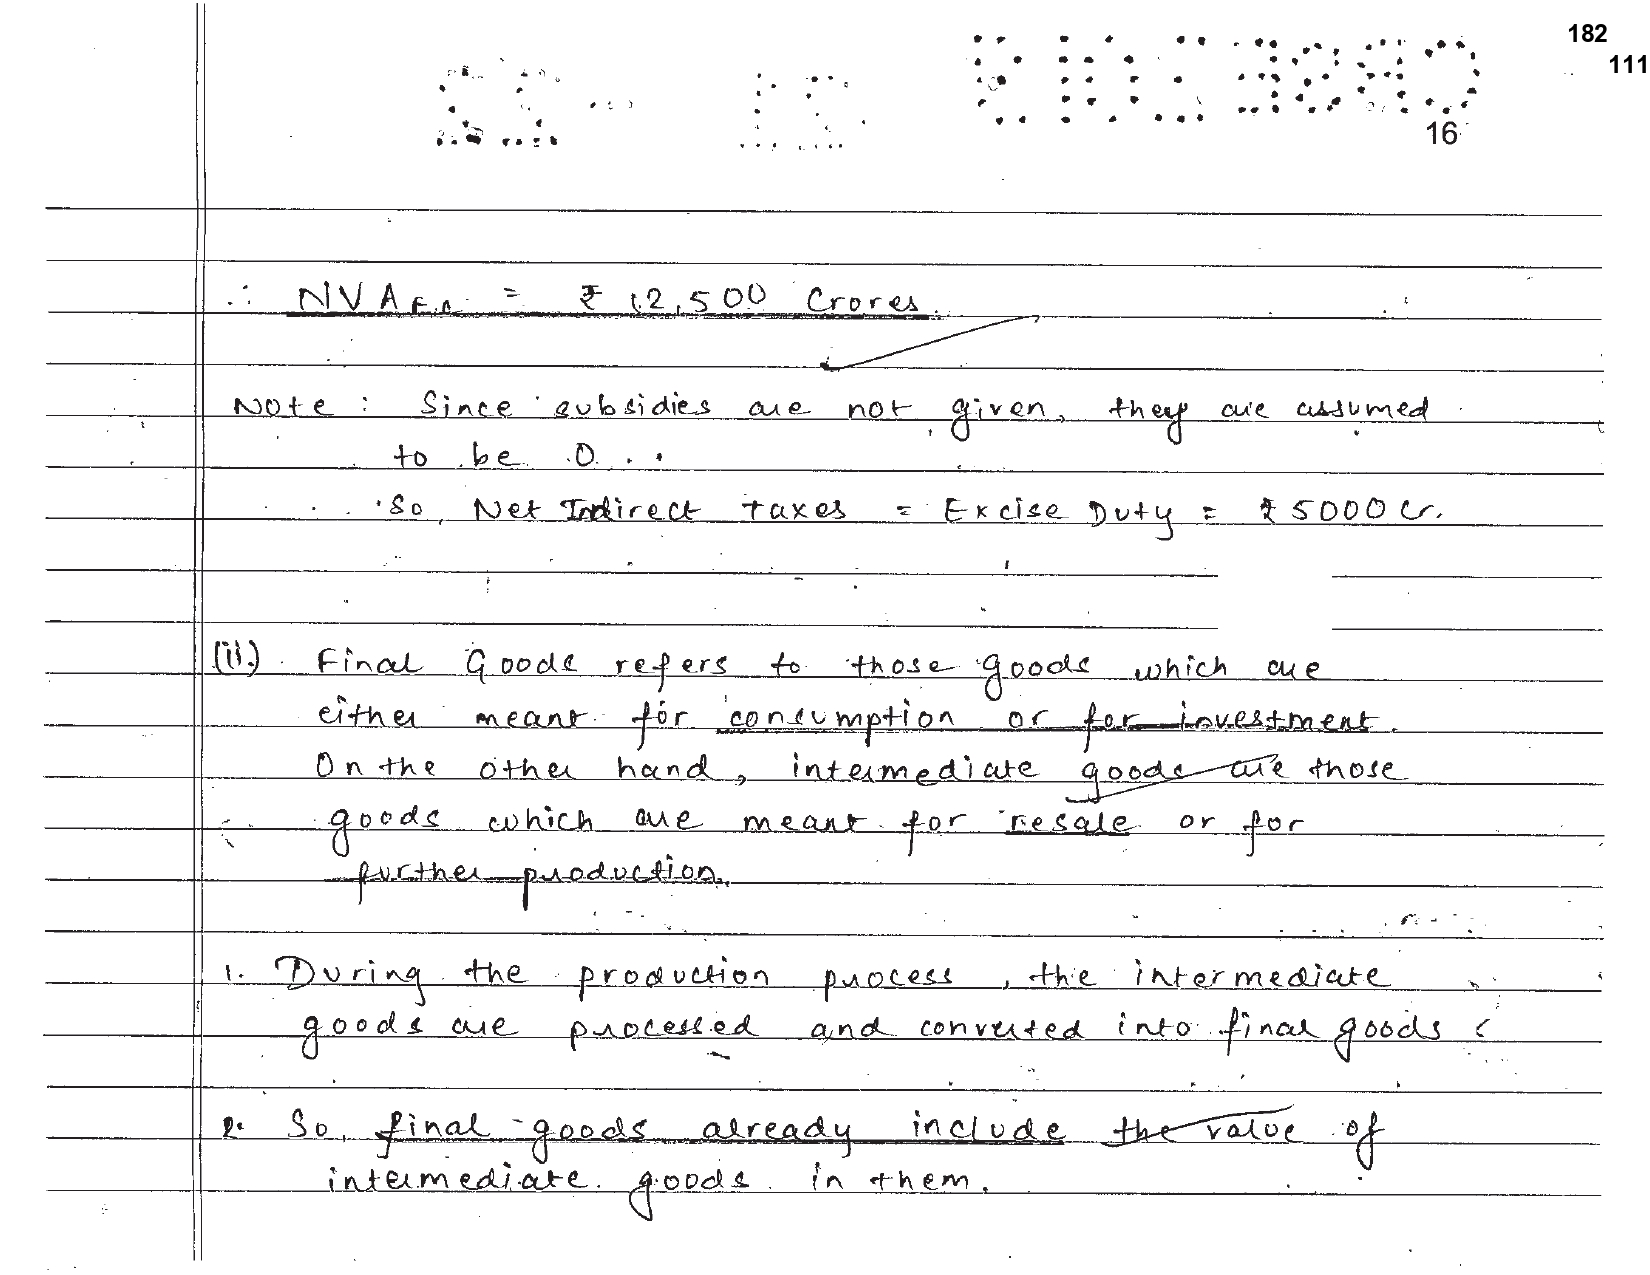 182
111
16
∴ NVA F.C = ₹ 12,500 Crores.
Note : Since subsidies are not given, they are assumed
to be 0.
So, Net Indirect taxes = Excise Duty = ₹ 5000 Cr.
(ii) Final Goods refers to those goods which are
either meant for consumption or for investment.
On the other hand, intermediate goods are those
goods which are meant for resale or for
further production.
1. During the production process, the intermediate
goods are processed and converted into final goods
2. So, final goods already include the value of
intermediate goods in them.